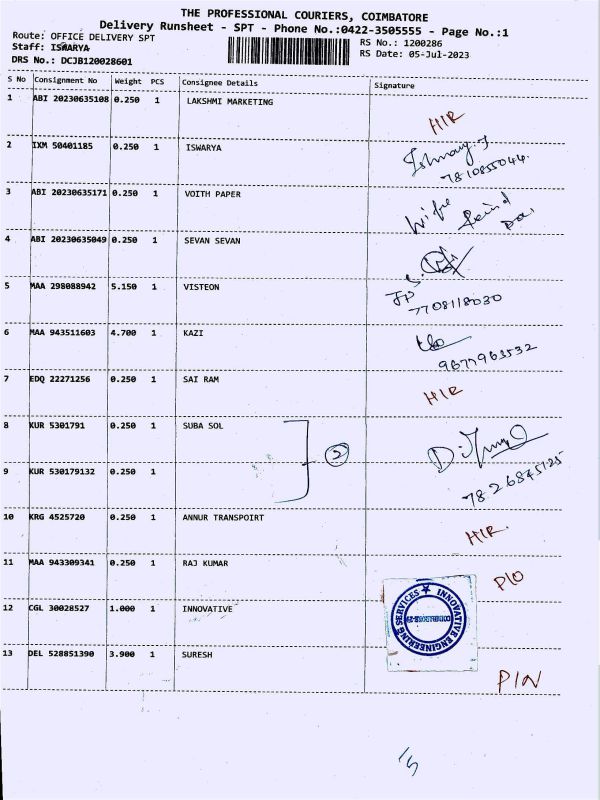 THE PROFESSIONAL COURIERS, COIMBATORE
Delivery Runsheet - SPT - Phone No.:0422-3505555 - Page No.:1
Route: OFFICE DELIVERY SPT
RS No.: 1200286
Staff: ISWARYA
RS Date: 05-Jul-2023
DRS No.: DCJB120028601
S No Consignment No Weight PCS Consignee Details Signature
1 ABI 20230635108 0.250 1 LAKSHMI MARKETING HIR
2 IXM 50401185 0.250 1 ISWARYA
7810855044.
3 ABI 20230635171 0.250 1 VOITH PAPER
4 ABI 20230635049 0.250 1 SEVAN SEVAN
5 MAA 298088942 5.150 1 VISTEON
7708118030
6 MAA 943511603 4.700 1 KAZI
9677963532
7 EDQ 22271256 0.250 1 SAI RAM HIR
8 KUR 5301791 0.250 1 SUBA SOL
2
9 KUR 530179132 0.250 1
7826845125
10 KRG 4525720 0.250 1 ANNUR TRANSPOIRT HIR.
11 MAA 943309341 0.250 1 RAJ KUMAR P10
12 CGL 30028527 1.000 1 INNOVATIVE
INNOVATIVE ENGINEERING SERVICES
13 DEL 528851390 3.900 1 SURESH PIN